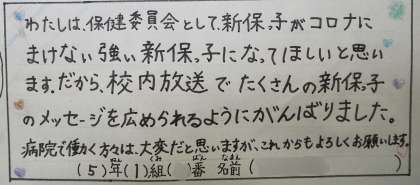 わたしは、保健委員会として、新保っ子がコロナに
まけない強い新保っ子になってほしいと思い
ます。だから、校内放送でたくさんの新保っ子
のメッセージを広められるようにがんばりました。
病院で働く方々は、大変だと思いますが、これからもよろしくお願いします。
(5)年(1)組( )番 名前( )